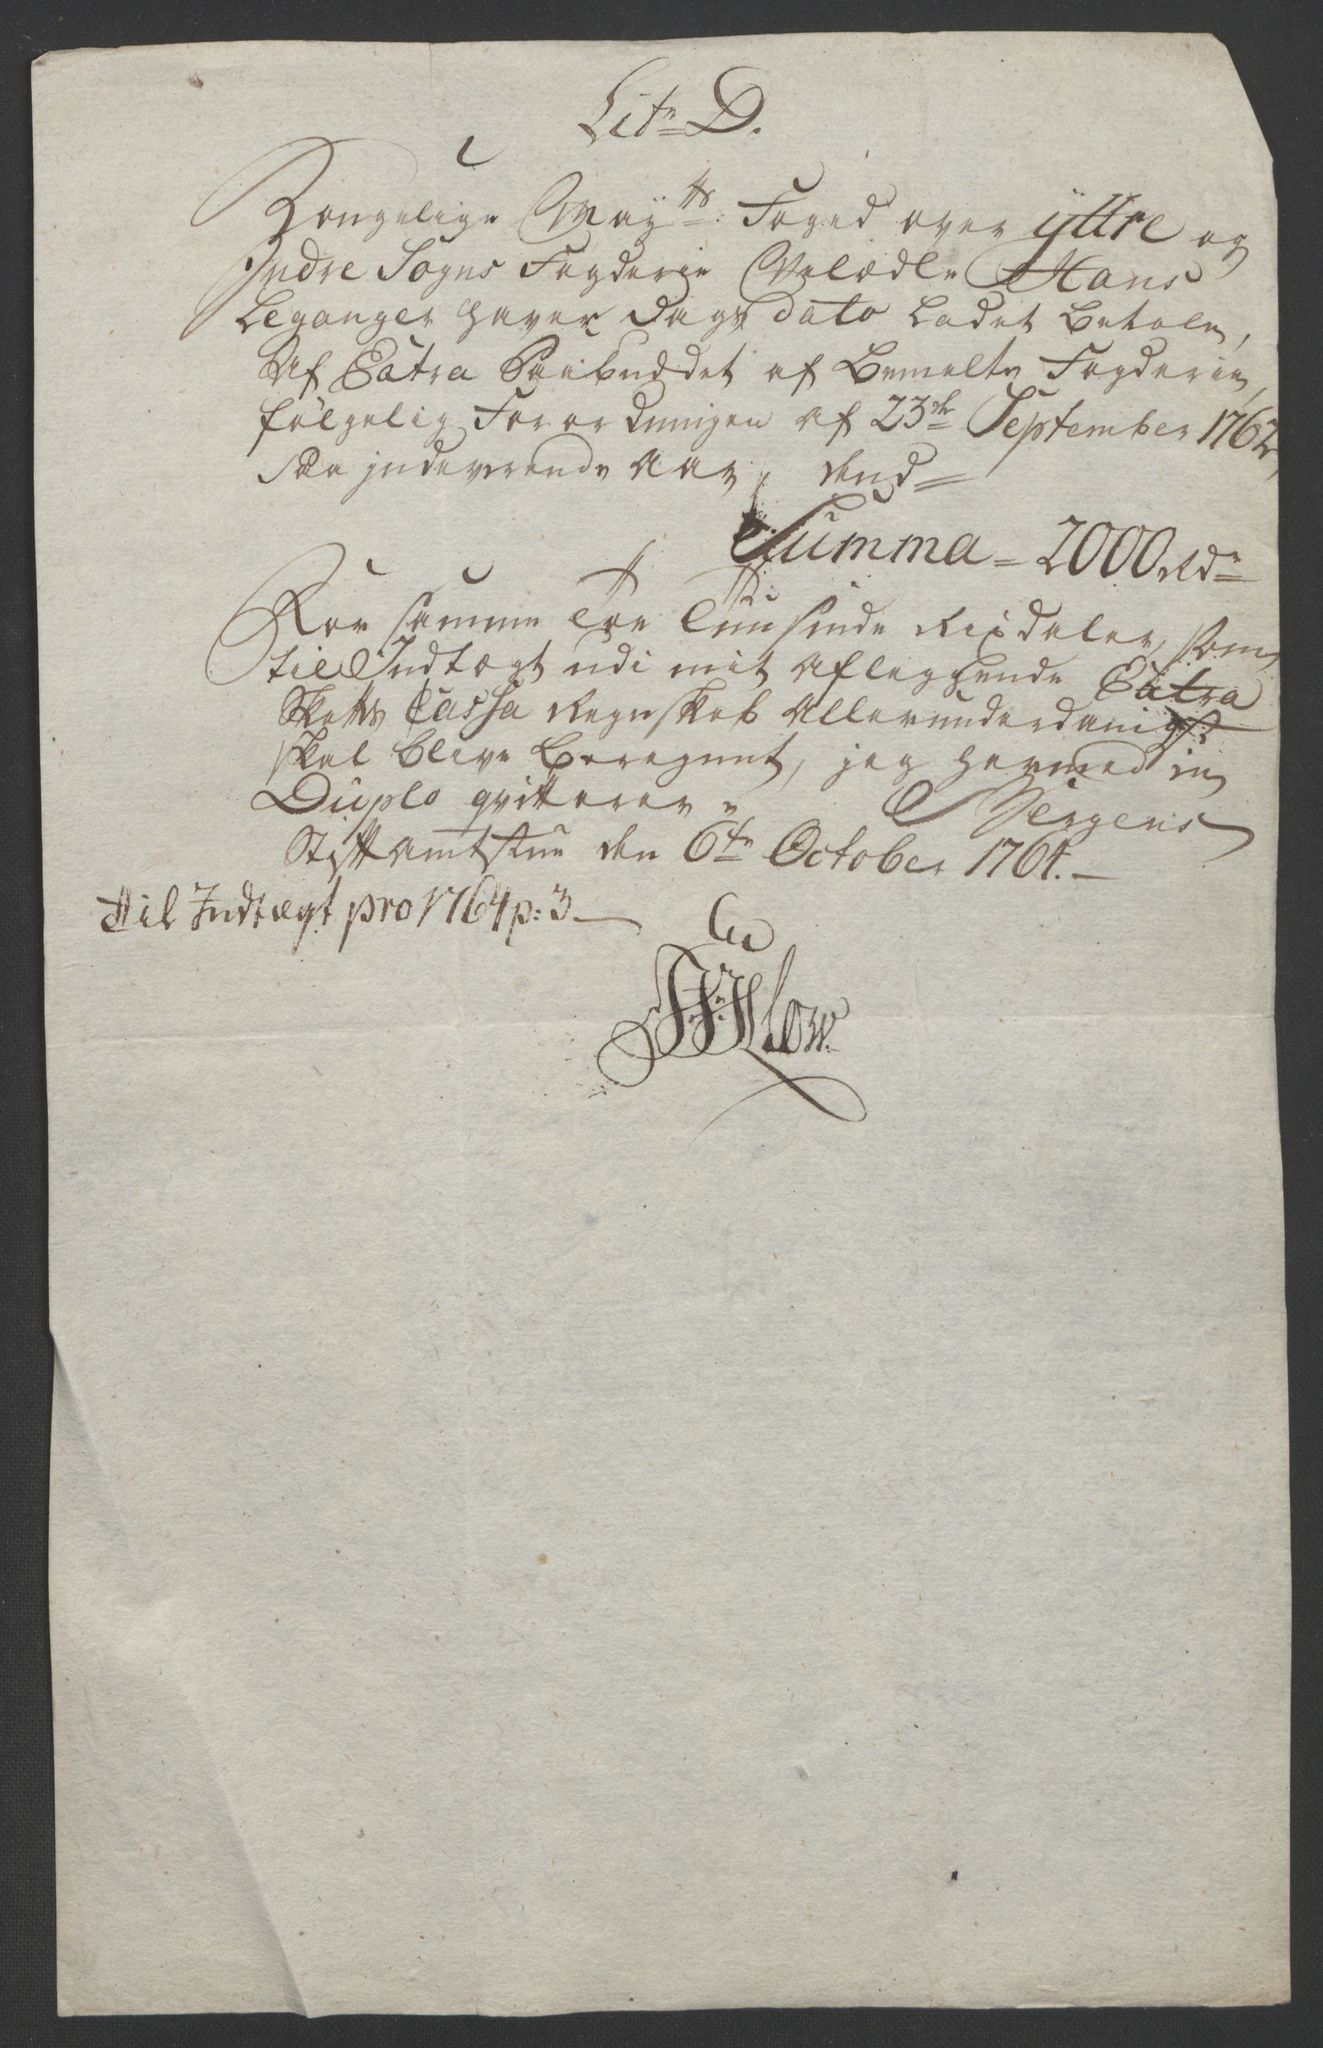 Litr D.
Kongelige May:ts Foged over ÿttre og
Indre Sogns Fogderie Velædle Hans
Leganger haver Dags dato Ladet Betale,
Af Extra Paabuddet af Bemelte Fogderie,
følgelig Forordningen af 23de September 1762,
for indeværende Aar, dend
Summa = 2000 Rdr
For samme Toe Tuusinde Rixdaler, som
til Indtægt udi mit aflæggende Extra
Skatts Cassa Regnskab Allerunderdanigst
skal blive Beregnet, jeg hermed in
Duplo qvitterer. Bergens
Stiftamtstue den 6te October 1764.
Til Indtægt pro 1764 p: 3